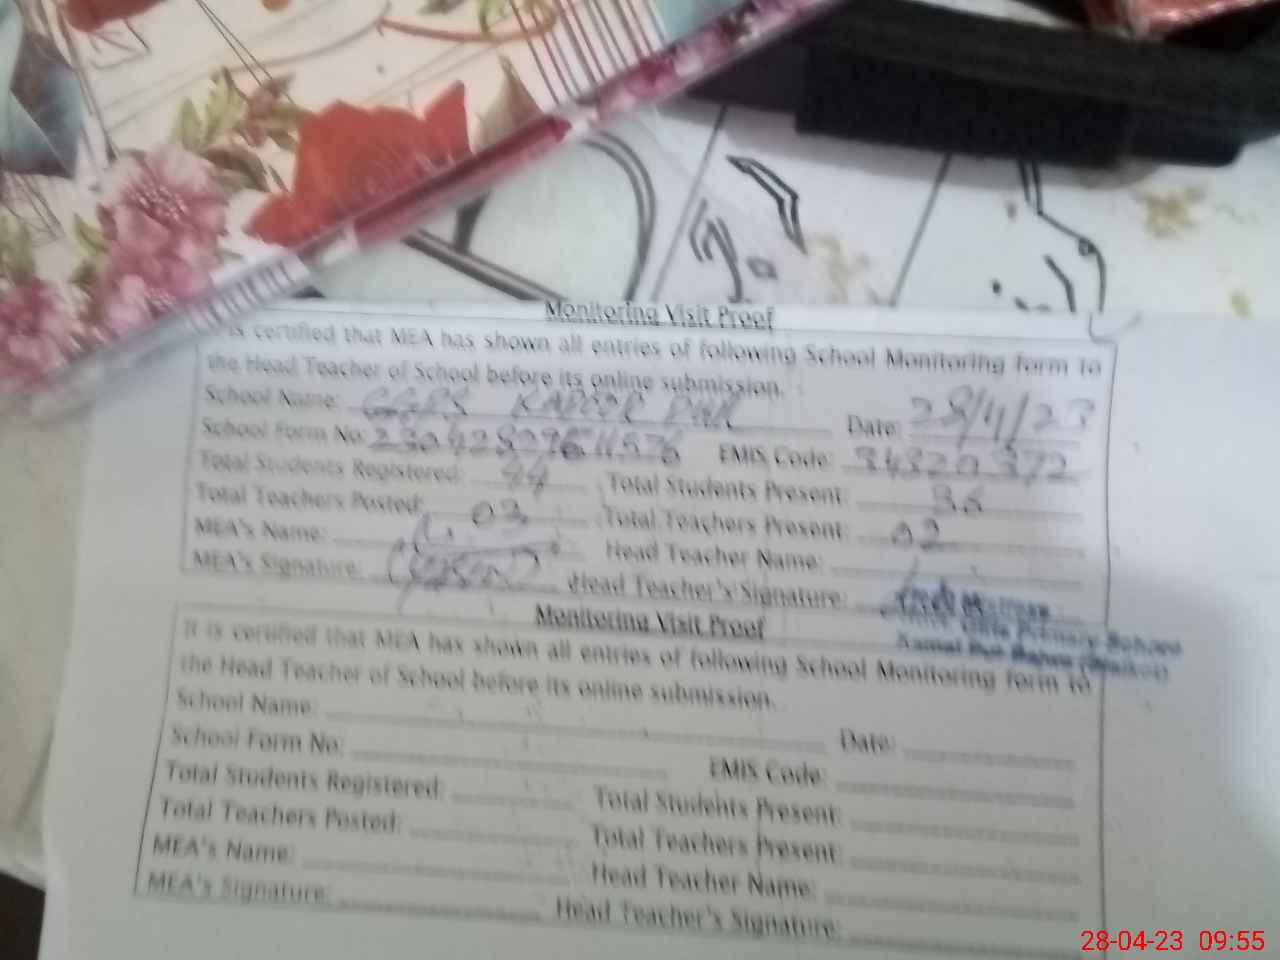 Monitoring Visit Proof
is certified that MEA has shown all entries of following School Monitoring form to
the Head Teacher of School before its online submission.
School Name: GGPS Date: 28/4/23
School Form No: EMIS Code: 34320372
Total Students Registered: 44 Total Students Present: 36
Total Teachers Posted: 03 Total Teachers Present: 02
MEA's Name: Head Teacher Name:
MEA's Signature: Head Teacher's Signature:
Girls Primary School
Monitoring Visit Proof
It is certified that MEA has shown all entries of following School Monitoring form to
the Head Teacher of School before its online submission.
School Name: Date:
School Form No: EMIS Code:
Total Students Registered: Total Students Present:
Total Teachers Posted: Total Teachers Present:
MEA's Name: Head Teacher Name:
MEA's Signature: Head Teacher's Signature:
28-04-23 09:55